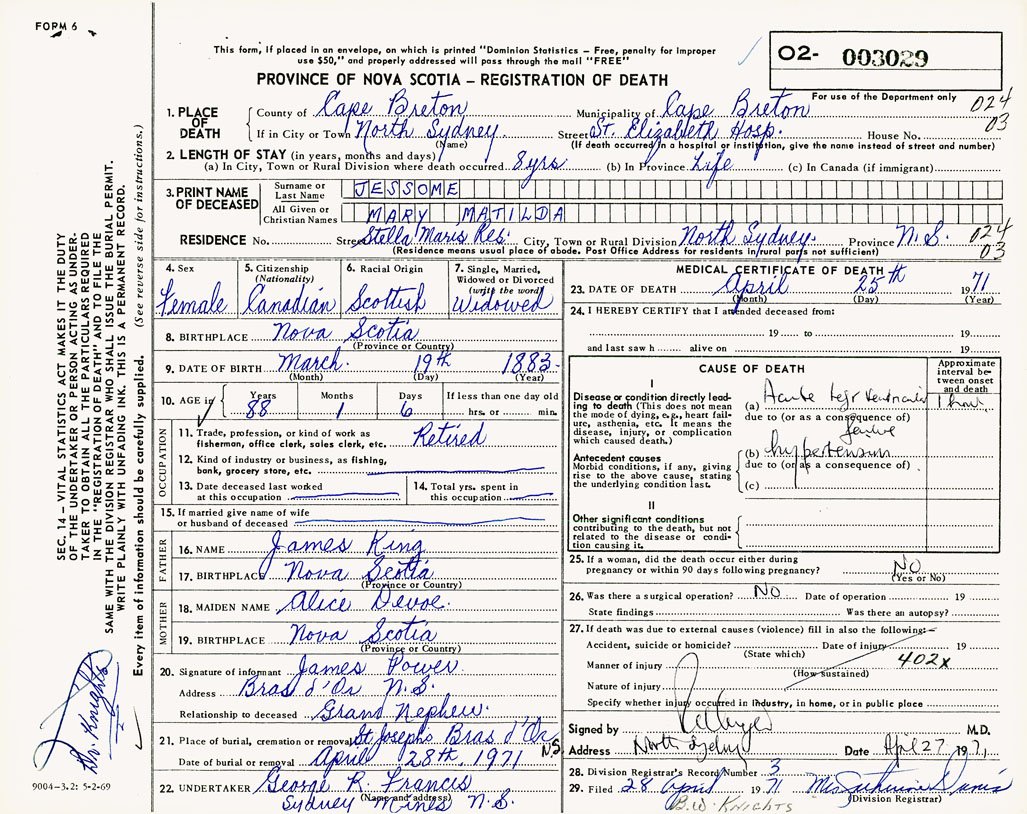 FORM 6
This form, if placed in an envelope, on which is printed "Dominion Statistics – Free, penalty for improper
use $50," and properly addressed will pass through the mail "FREE"
PROVINCE OF NOVA SCOTIA – REGISTRATION OF DEATH
02- 003029
For use of the Department only
024
03
1. PLACE OF DEATH
County of Cape Breton Municipality of Cape Breton
If in City or Town North Sydney. Street St. Elizabeth Hosp. House No.
(Name) (If death occurred in a hospital or institution, give the name instead of street and number)
2. LENGTH OF STAY (in years, months and days)
(a) In City, Town or Rural Division where death occurred 8 yrs (b) In Province Life (c) In Canada (if immigrant)
3. PRINT NAME OF DECEASED
Surname or Last Name JESSOME
All Given or Christian Names MARY MATILDA
RESIDENCE No. Street Stella Maris Res. City, Town or Rural Division North Sydney. Province N.S.
024
03
(Residence means usual place of abode. Post Office Address for residents in rural parts not sufficient)
4. Sex
Female
5. Citizenship
(Nationality)
Canadian
6. Racial Origin
Scottish
7. Single, Married,
Widowed or Divorced
(write the word)
Widowed
8. BIRTHPLACE Nova Scotia
(Province or Country)
9. DATE OF BIRTH March. 19th 1883
(Month) (Day) (Year)
10. AGE in
Years Months Days If less than one day old
88 1 6 hrs. or min.
OCCUPATION
11. Trade, profession, or kind of work as
fisherman, office clerk, sales clerk, etc. Retired
12. Kind of industry or business, as fishing,
bank, grocery store, etc.
13. Date deceased last worked
at this occupation
14. Total yrs. spent in
this occupation
15. If married give name of wife
or husband of deceased
FATHER
16. NAME James King
17. BIRTHPLACE Nova Scotia
(Province or Country)
MOTHER
18. MAIDEN NAME Alice Devoe.
19. BIRTHPLACE Nova Scotia
(Province or Country)
20. Signature of informant James Power.
Address Bras d'Or N.S.
Relationship to deceased Grand Nephew.
21. Place of burial, cremation or removal St Josephs Bras d'Or N.S.
Date of burial or removal April 28th, 1971
22. UNDERTAKER George R. Francis
(Name and address)
Sydney Mines N.S.
MEDICAL CERTIFICATE OF DEATH
23. DATE OF DEATH April 25th 1971
(Month) (Day) (Year)
24. I HEREBY CERTIFY that I attended deceased from:
19 to 19
and last saw h alive on 19
CAUSE OF DEATH
Approximate
interval be-
tween onset
and death
I
Disease or condition directly lead-
ing to death (This does not mean
the mode of dying, e.g., heart fail-
ure, asthenia, etc. It means the
disease, injury, or complication
which caused death.)
(a) Acute left ventricular 1 hour
due to (or as a consequence of)
failure
Antecedent causes
Morbid conditions, if any, giving
rise to the above cause, stating
the underlying condition last.
(b) hypertension
due to (or as a consequence of)
(c)
II
Other significant conditions
contributing to the death, but not
related to the disease or condi-
tion causing it.
25. If a woman, did the death occur either during
pregnancy or within 90 days following pregnancy? NO
(Yes or No)
26. Was there a surgical operation? NO Date of operation 19
State findings Was there an autopsy?
27. If death was due to external causes (violence) fill in also the following:–
Accident, suicide or homicide? Date of injury 19
(State which)
Manner of injury 402x
(How sustained)
Nature of injury
Specify whether injury occurred in industry, in home, or in public place
Signed by M.D.
Address North Sydney Date April 27 1971,
28. Division Registrar's Record Number 3
29. Filed 28 April 1971
(Division Registrar)
B.W. KNIGHTS
SEC. 14 – VITAL STATISTICS ACT MAKES IT THE DUTY
OF THE UNDERTAKER OR PERSON ACTING AS UNDER-
TAKER TO OBTAIN ALL THE PARTICULARS REQUIRED
IN THE "REGISTRATION OF DEATH" AND TO FILE THE
SAME WITH THE DIVISION REGISTRAR WHO SHALL ISSUE THE BURIAL PERMIT.
WRITE PLAINLY WITH UNFADING INK. THIS IS A PERMANENT RECORD.
Every item of information should be carefully supplied. (See reverse side for instructions.)
Knights
9004–3.2: 5-2-69